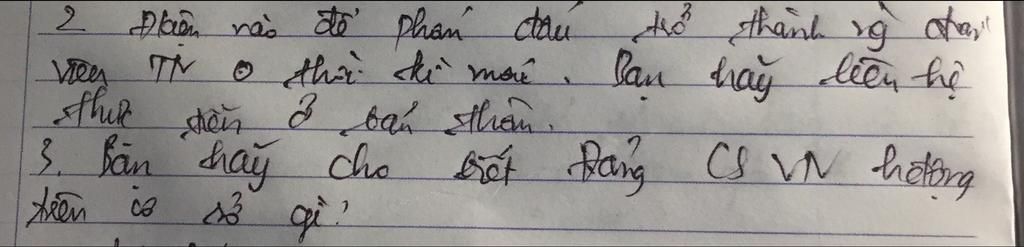 2 Đkiện nào để phấn đấu trở thành ng đoàn
viên TN ở thời kì mới. Bạn hãy liên hệ
thực tiễn ở bản thân.
3. Bạn hãy cho biết Đảng CS VN hđộng
trên cơ sở gì?